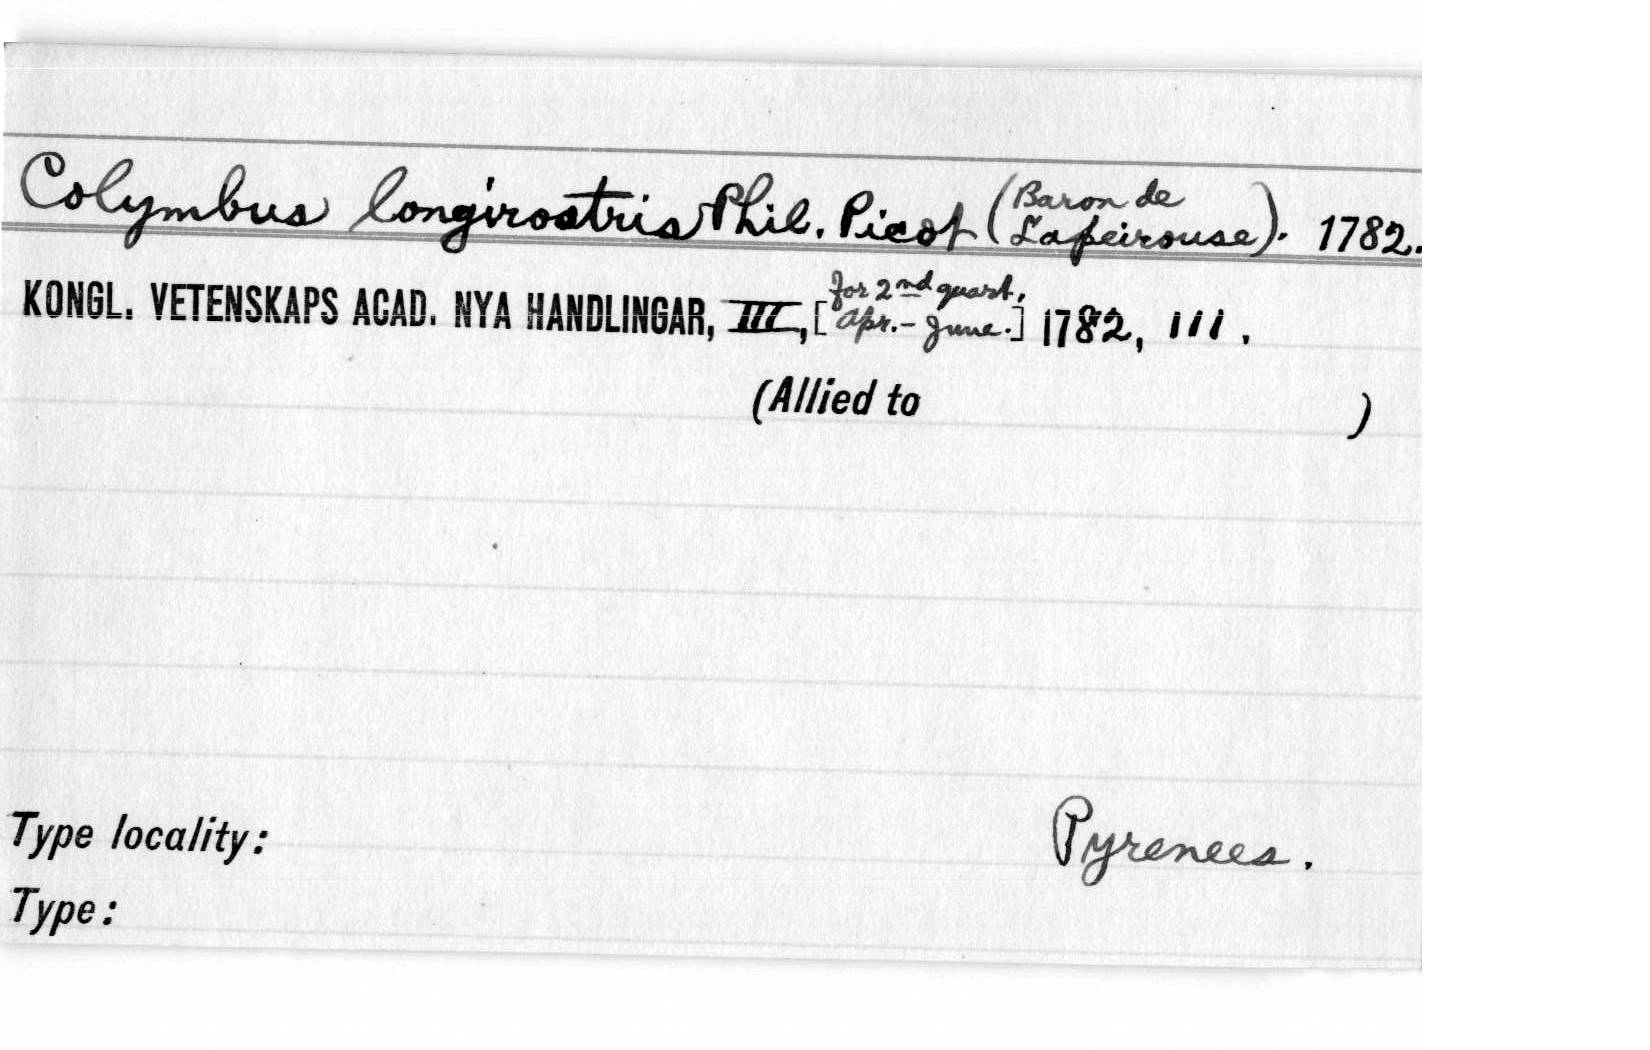 Colymbus longirostris Phil. Picot (Baron de Lapeirouse). 1782.
KONGL. VETENSKAPS ACAD. NYA HANDLINGAR, III, [for 2nd quart, Apr.-June.] 1782, 111.
(Allied to )
Type locality: Pyrenees.
Type: